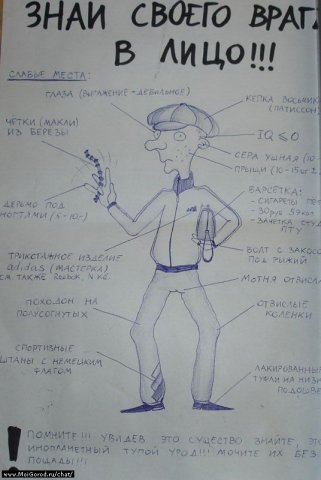 ЗНАЙ СВОЕГО ВРАГА
В ЛИЦО!!!
СЛАБЫЕ МЕСТА:
ГЛАЗА (ВЫРАЖЕНИЕ - ДЕБИЛЬНОЕ)
КЕПКА ВОСЬМИК
(ПАТИССОН)
ЧЕТКИ (МАКЛИ)
ИЗ БЕРЕЗЫ
IQ ≤ 0
СЕРА УШНАЯ (10-
ПРЫЩИ (10-15шт
БАРСЕТКА:
- СИГАРЕТЫ
- 30руб 59коп
- ЗАЧЕТКА
ПТУ
ДЕРЬМО ПОД
НОГТЯМИ (5-10-)
ТРИКОТАЖНОЕ ИЗДЕЛИЕ
adidas (МАСТЕРКА)
СМ ТАКЖЕ Reebok,
БОЛТ С ЗАКОСО
ПОД РЫЖИЙ
МОТНЯ ОТВИСЛА
ПОХОДОН НА
ПОЛУСОГНУТЫХ
ОТВИСЛЫЕ
КОЛЕНКИ
СПОРТИВНЫЕ
ШТАНЫ С НЕМЕЦКИМ
ФЛАГОМ
ЛАКИРОВАННЫЕ
ТУФЛИ НА НИЗК
ПОДОШВЕ
! ПОМНИТЕ!!! УВИДЕВ ЭТО СУЩЕСТВО ЗНАЙТЕ, ЭТО
ИНОПЛАНЕТНЫЙ ТУПОЙ УРОД!!! МОЧИТЕ ИХ БЕЗ
ПОЩАДЫ!!!
www.MoiGorod.ru/chat/